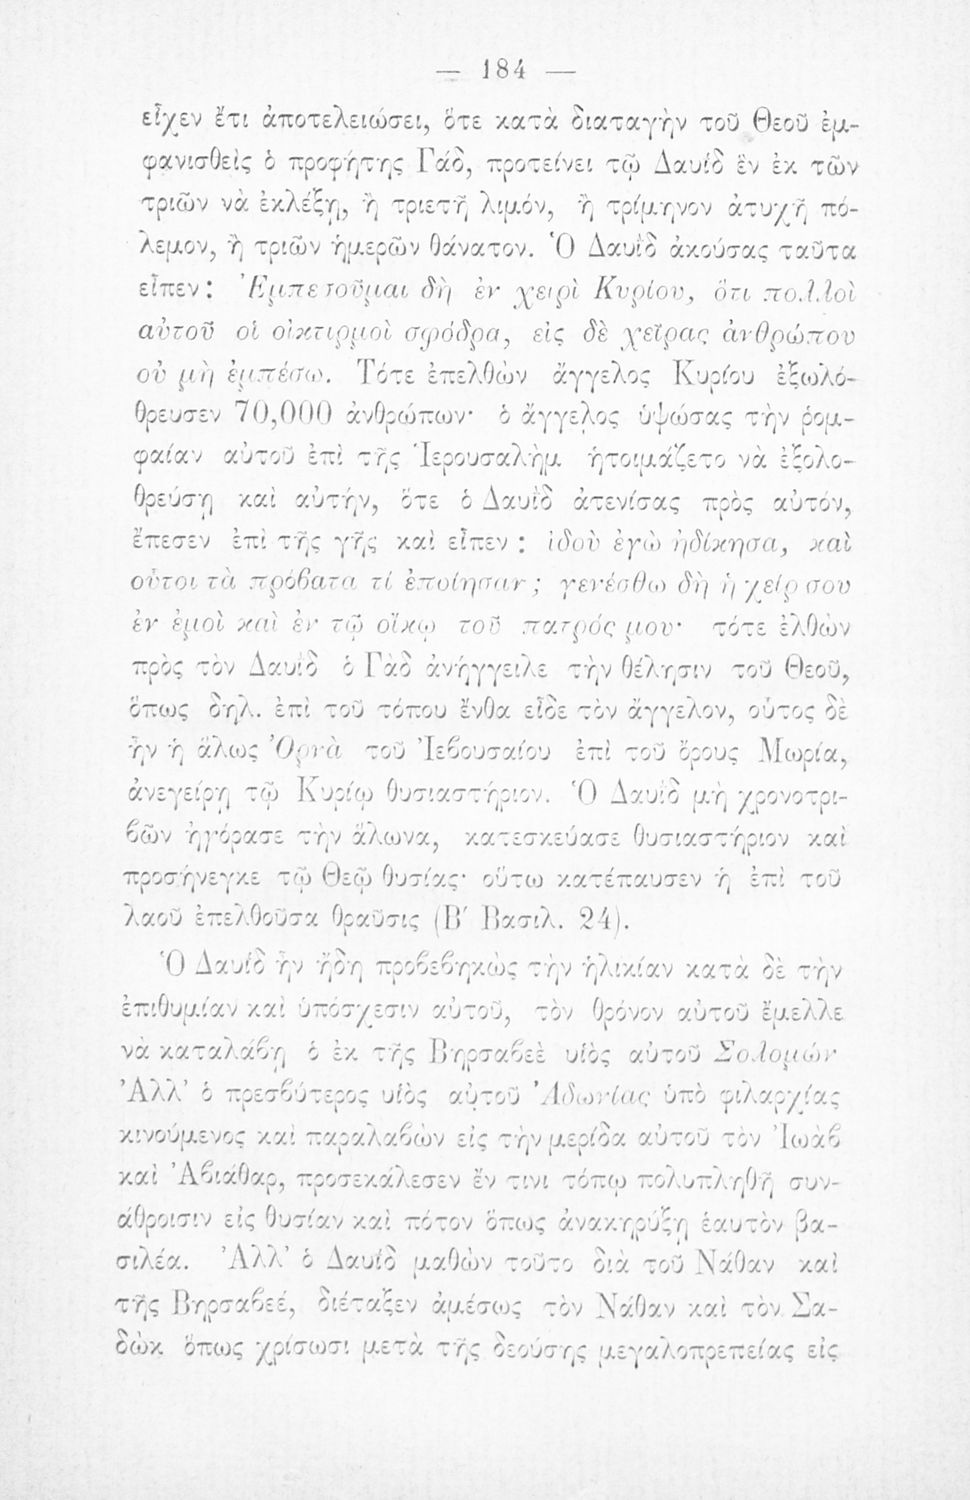 — 184 —
εἶχεν ἔτι ἀποτελειώσει, ὅτε κατὰ διαταγὴν τοῦ Θεοῦ ἐμ-
φανισθεὶς ὁ προφήτης Γάδ, προτείνει τῷ Δαυΐδ ἓν ἐκ τῶν
τριῶν νὰ ἐκλέξῃ, ἢ τριετῆ λιμόν, ἢ τρίμηνον ἀτυχῆ πό-
λεμον, ἢ τριῶν ἡμερῶν θάνατον. Ὁ Δαυῒδ ἀκούσας ταῦτα
εἶπεν: Ἐμπεσοῦμαι δὴ ἐν χειρὶ Κυρίου, ὅτι πολλοὶ
αὐτοῦ οἱ οἰκτιρμοὶ σφόδρα, εἰς δὲ χεῖρας ἀνθρώπου
οὐ μὴ ἐμπέσω. Τότε ἐπελθὼν ἄγγελος Κυρίου ἐξωλό-
θρευσεν 70,000 ἀνθρώπων· ὁ ἄγγελος ὑψώσας τὴν ῥομ-
φαίαν αὐτοῦ ἐπὶ τῆς Ἱερουσαλὴμ ἡτοιμάζετο νὰ ἐξολο-
θρεύσῃ καὶ αὐτήν, ὅτε ὁ Δαυῒδ ἀτενίσας πρὸς αὐτόν,
ἔπεσεν ἐπὶ τῆς γῆς καὶ εἶπεν : ἰδοὺ ἐγὼ ἠδίκησα, καὶ
οὗτοι τὰ πρόβατα τί ἐποίησαν; γενέσθω δὴ ἡ χείρ σου
ἐν ἐμοὶ καὶ ἐν τῷ οἴκῳ τοῦ πατρός μου· τότε ἐλθὼν
πρὸς τὸν Δαυῒδ ὁ Γὰδ ἀνήγγειλε τὴν θέλησιν τοῦ Θεοῦ,
ὅπως δηλ. ἐπὶ τοῦ τόπου ἔνθα εἶδε τὸν ἄγγελον, οὗτος δὲ
ἦν ἡ ἅλως Ὀρνὰ τοῦ Ἰεβουσαίου ἐπὶ τοῦ ὄρους Μωρία,
ἀνεγείρῃ τῷ Κυρίῳ θυσιαστήριον. Ὁ Δαυῒδ μὴ χρονοτρι-
βῶν ἠγόρασε τὴν ἅλωνα, κατεσκεύασε θυσιαστήριον καὶ
προσήνεγκε τῷ Θεῷ θυσίας· οὕτω κατέπαυσεν ἡ ἐπὶ τοῦ
λαοῦ ἐπελθοῦσα θραῦσις (Β′ Βασιλ. 24).
Ὁ Δαυΐδ ἦν ἤδη προβεβηκὼς τὴν ἡλικίαν κατὰ δὲ τὴν
ἐπιθυμίαν καὶ ὑπόσχεσιν αὐτοῦ, τὸν θρόνον αὐτοῦ ἔμελλε
νὰ καταλάβῃ ὁ ἐκ τῆς Βηρσαβεὲ υἱὸς αὐτοῦ Σολομών
Ἀλλ’ ὁ πρεσβύτερος υἱὸς αὐτοῦ Ἀδωνίας ὑπὸ φιλαρχίας
κινούμενος καὶ παραλαβὼν εἰς τὴν μερίδα αὐτοῦ τὸν Ἰωὰβ
καὶ Ἀβιάθαρ, προσεκάλεσεν ἔν τινι τόπῳ πολυπληθῆ συν-
άθροισιν εἰς θυσίαν καὶ πότον ὅπως ἀνακηρύξῃ ἑαυτὸν βα-
σιλέα. Ἀλλ’ ὁ Δαυΐδ μαθὼν τοῦτο διὰ τοῦ Νάθαν καὶ
τῆς Βηρσαβεέ, διέταξεν ἀμέσως τὸν Νάθαν καὶ τὸν Σα-
δὼκ ὅπως χρίσωσι μετὰ τῆς δεούσης μεγαλοπρεπείας εἰς